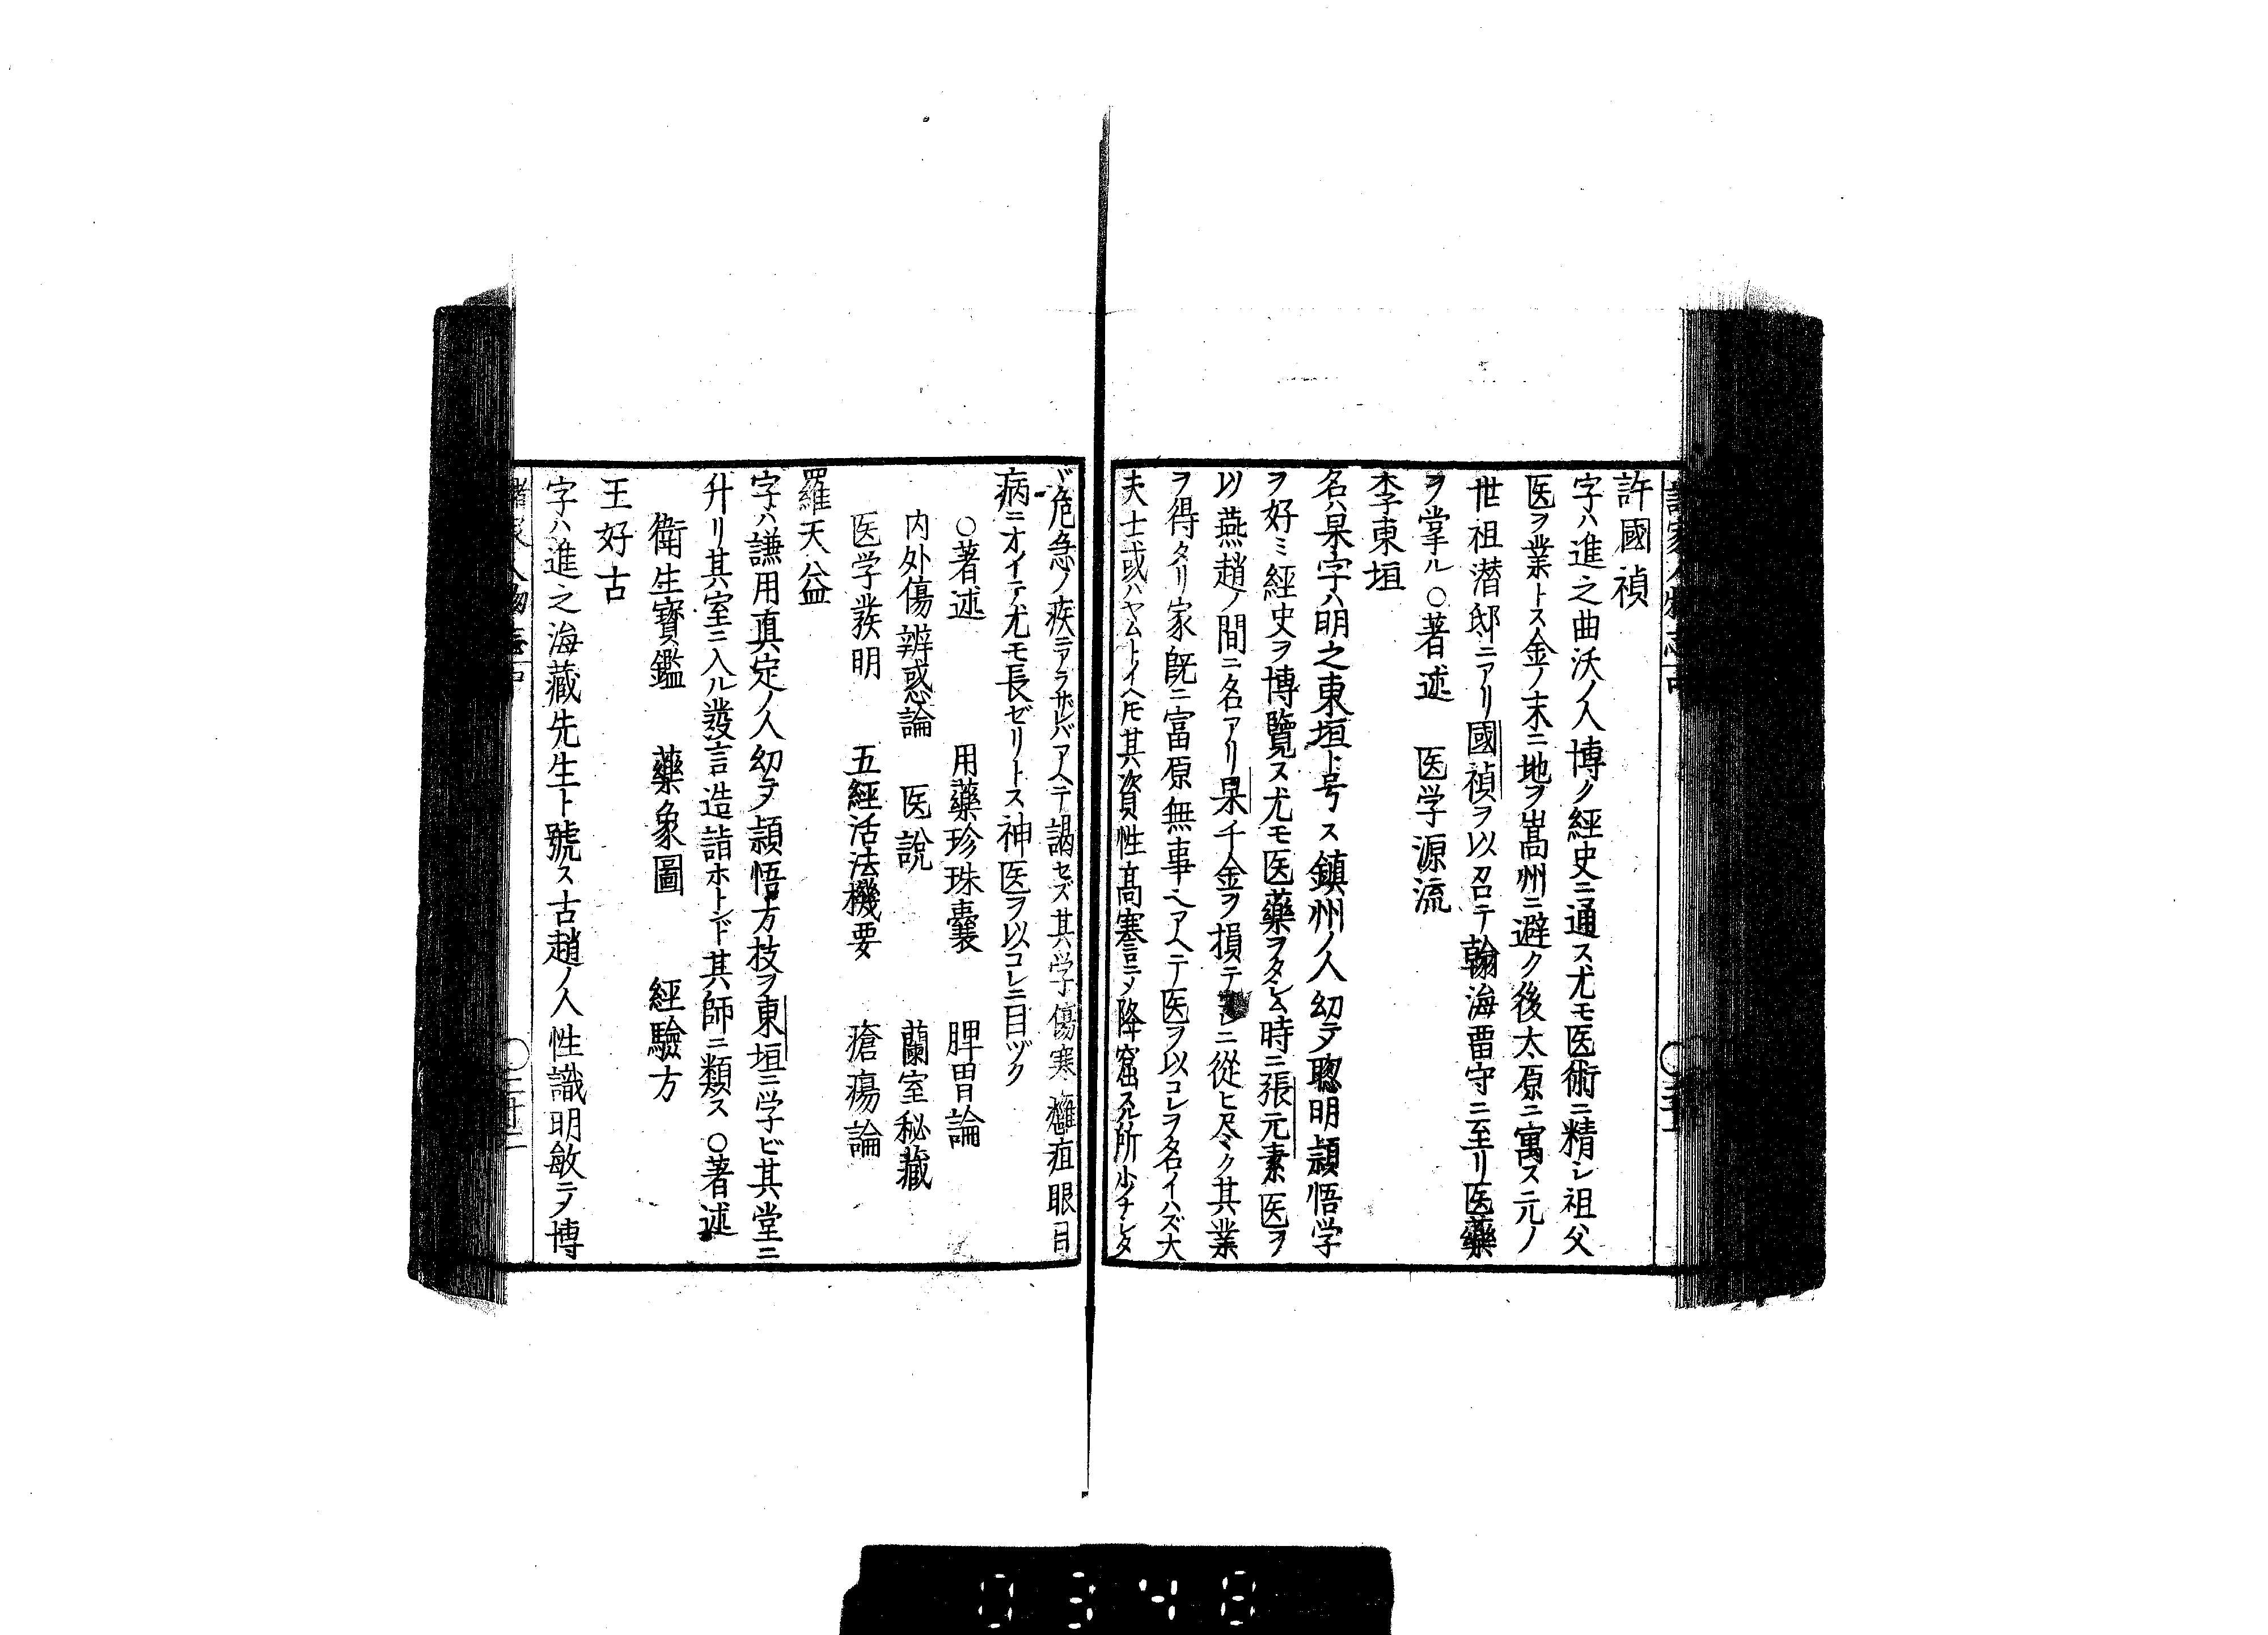 許國禎
字ハ進之曲沃ノ人博ク經史ニ通ス尤モ医術ニ精シ祖父
医ヲ業トス金ノ末ニ地ヲ嵩州ニ避ク後太原ニ寓ス元ノ
世祖潜邸ニアリ國禎ヲ以召テ翰海畱守ニ至リ医藥
ヲ掌ル ○著述 医学源流
李東垣
名ハ杲字ハ明之東垣ト号ス鎮州ノ人幼ヲ聰明頴悟学
ヲ好ミ經史ヲ博覽ス尤モ医藥ヲタシム時ニ張元素医ヲ
以燕趙ノ間ニ名アリ杲千金ヲ損テコレニ從ヒ尽ク其業
ヲ得タリ家既ニ富原無事ヘアヘテ医ヲ以コレヲ名イハズ大
夫士或ハヤムトイヘ𪜈其資性髙寒言ヲ降窟スル所少ナシタ
ヾ危急ノ疾ニアラザレバアヘテ謁セズ其学傷寒癰疽眼目
病ニオイテ尤モ長ゼリトス神医ヲ以コレニ目ヅク
○著述 用藥珍珠囊 脾胃論
内外傷辨惑論 医說 蘭室秘藏
医学發明 五經活法機要 瘡瘍論
羅天益
字ハ謙用真定ノ人幼ヲ頴悟方技ヲ東垣ニ学ビ其堂ニ
升リ其室ニ入ル發言造詣ホトンド其師ニ類ス ○著述
衛生寶鑑 藥象圖 經驗方
王好古
字ハ進之海藏先生ト號ス古趙ノ人性識明敏ニヲ博
0348